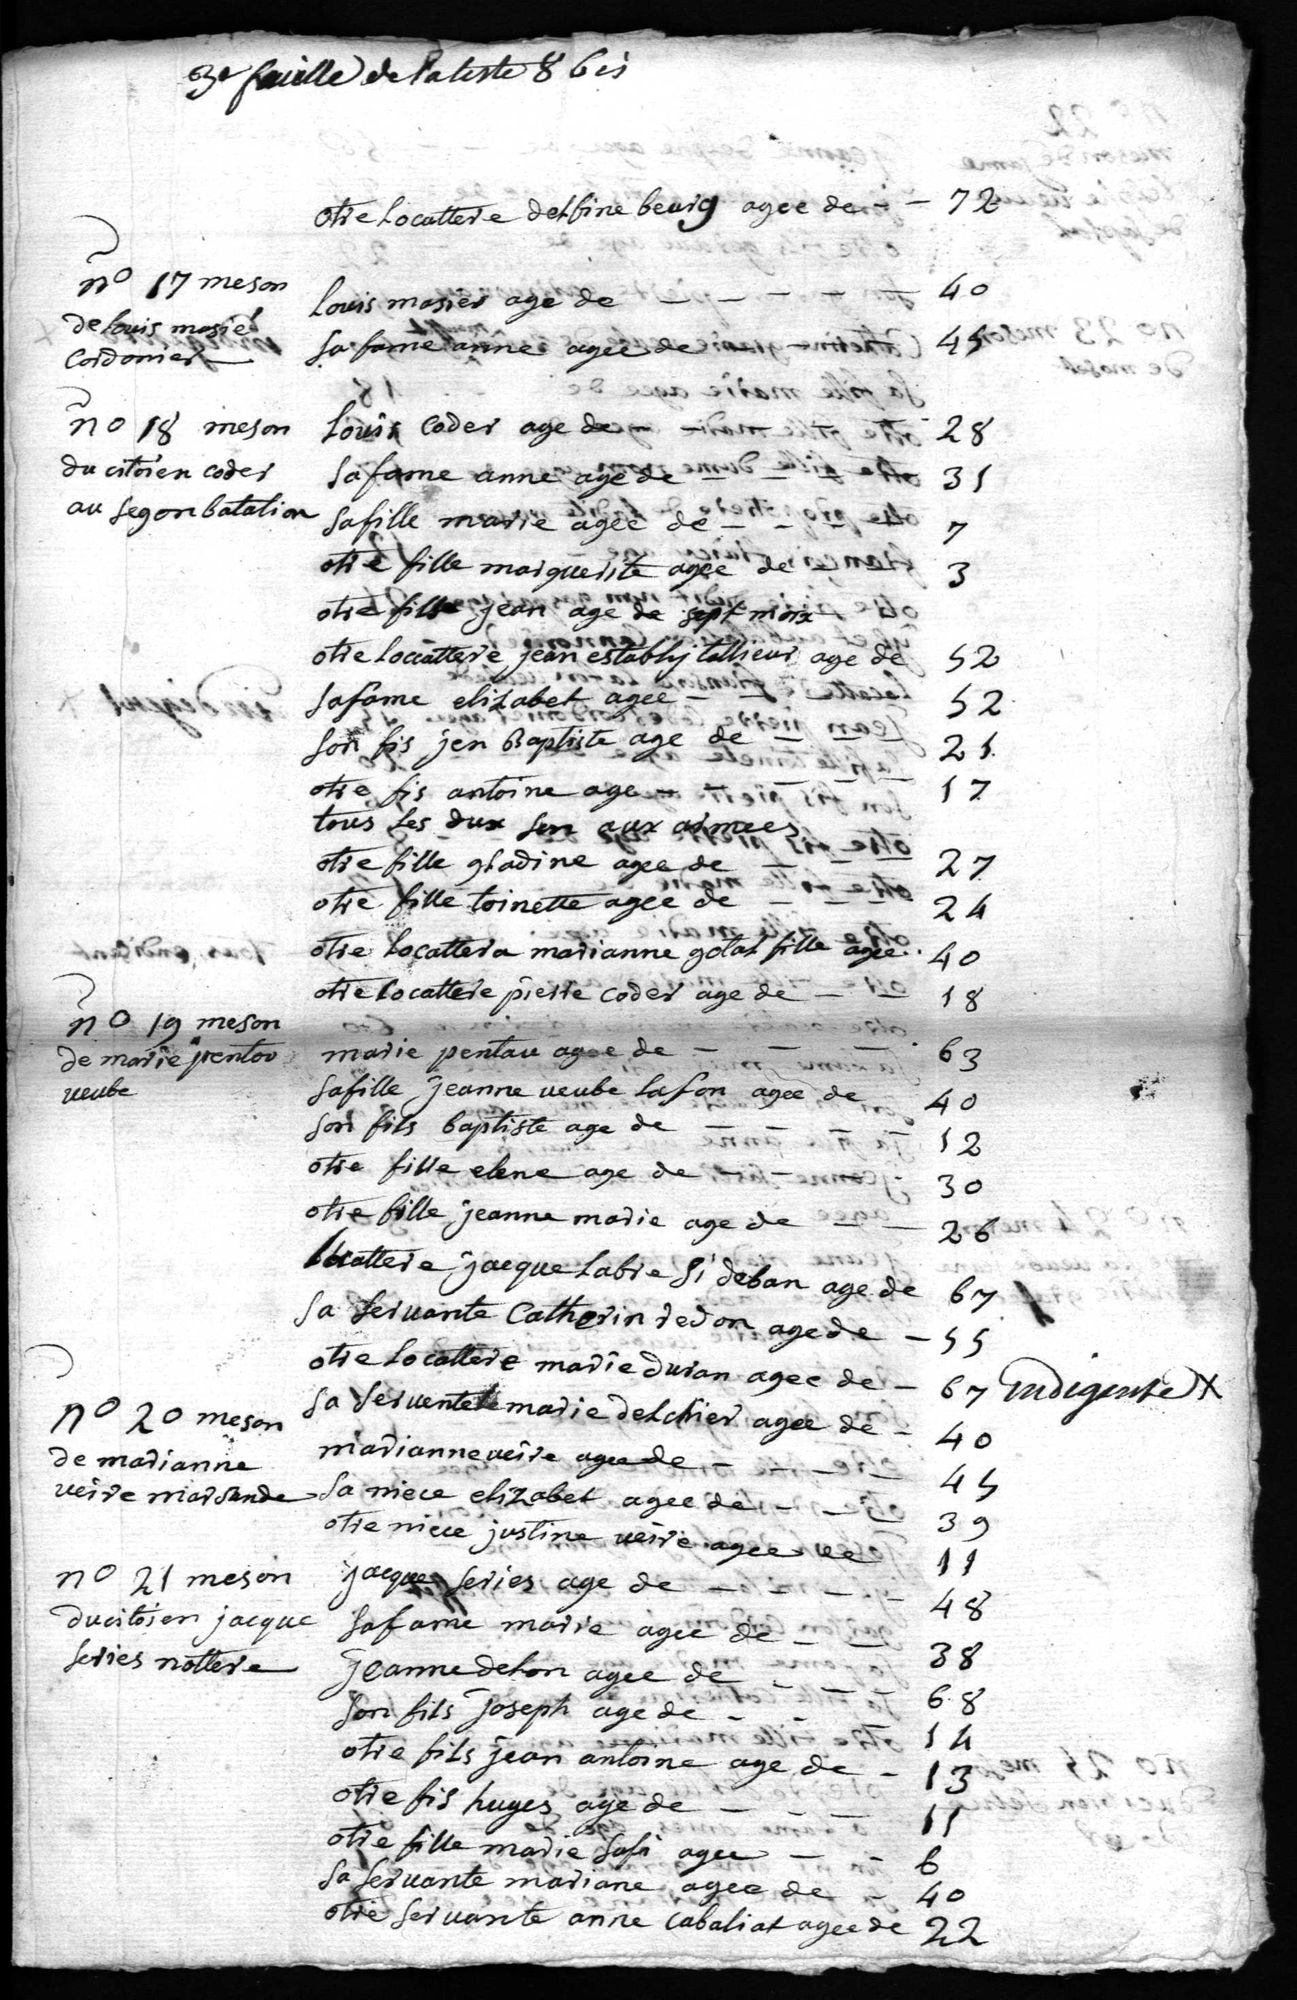 3e feuille de la liste 8 bis
otre locattere delfine beurg agee de - - 72
no 17 meson
de louis masier
cordonier
louis masier age de - - - - - 40
sa fame anne agee de 45
no 18 meson
du citoien coder
au segon batalion
louis coder age de - - - 28
sa fame anne age de - - - 31
sa fille marie agee de - - - 7
otre fille marguerite agee de - 3
otre fille jean age de sept moix
otre locattere jean establj tallieur age de 52
sa fame elizabet agee - 52
son fis jen Baptiste age de - - - 21
otre fis antoine age - - 17
tous les dux son aux armees
otre fille gladine agee de - - - 27
otre fille toinette agee de - - - 24
otre locattera marianne golat fille agee 40
otre locattere pierre coder age de - - 18
no 19 meson
de marie pentou
veube
marie pentau agee de - - - - 63
sa fille jeanne veube lafon agee de 40
son fils baptiste age de - - - - 12
otre fille elene age de - - - 30
otre fille jeanne marie age de - - 26
locattere jacque labre si deban age de 67
sa servante Catherin redon age de - 55
otre locattere marie duran agee de - 67 indigente X
sa servente marie delchier agee de - 40
no 20 meson
de marianne
veire marsande
marianne veire agee de - - - - 45
sa niece elizabet agee de - - - 39
otre niece justine veire agee de 11
no 21 meson
du citoien jacque
series nottere
jacque series age de - - - - 48
sa fame marie agee de - - 38
jeanne delon agee de - - - 68
son fils joseph age de - - 14
otre fils jean antoine age de - 13
otre fis huges age de - - - 11
otre fille marie safi agee - - 6
sa servante mariane agee de - 40
otre servante anne cabaliat agee de 22